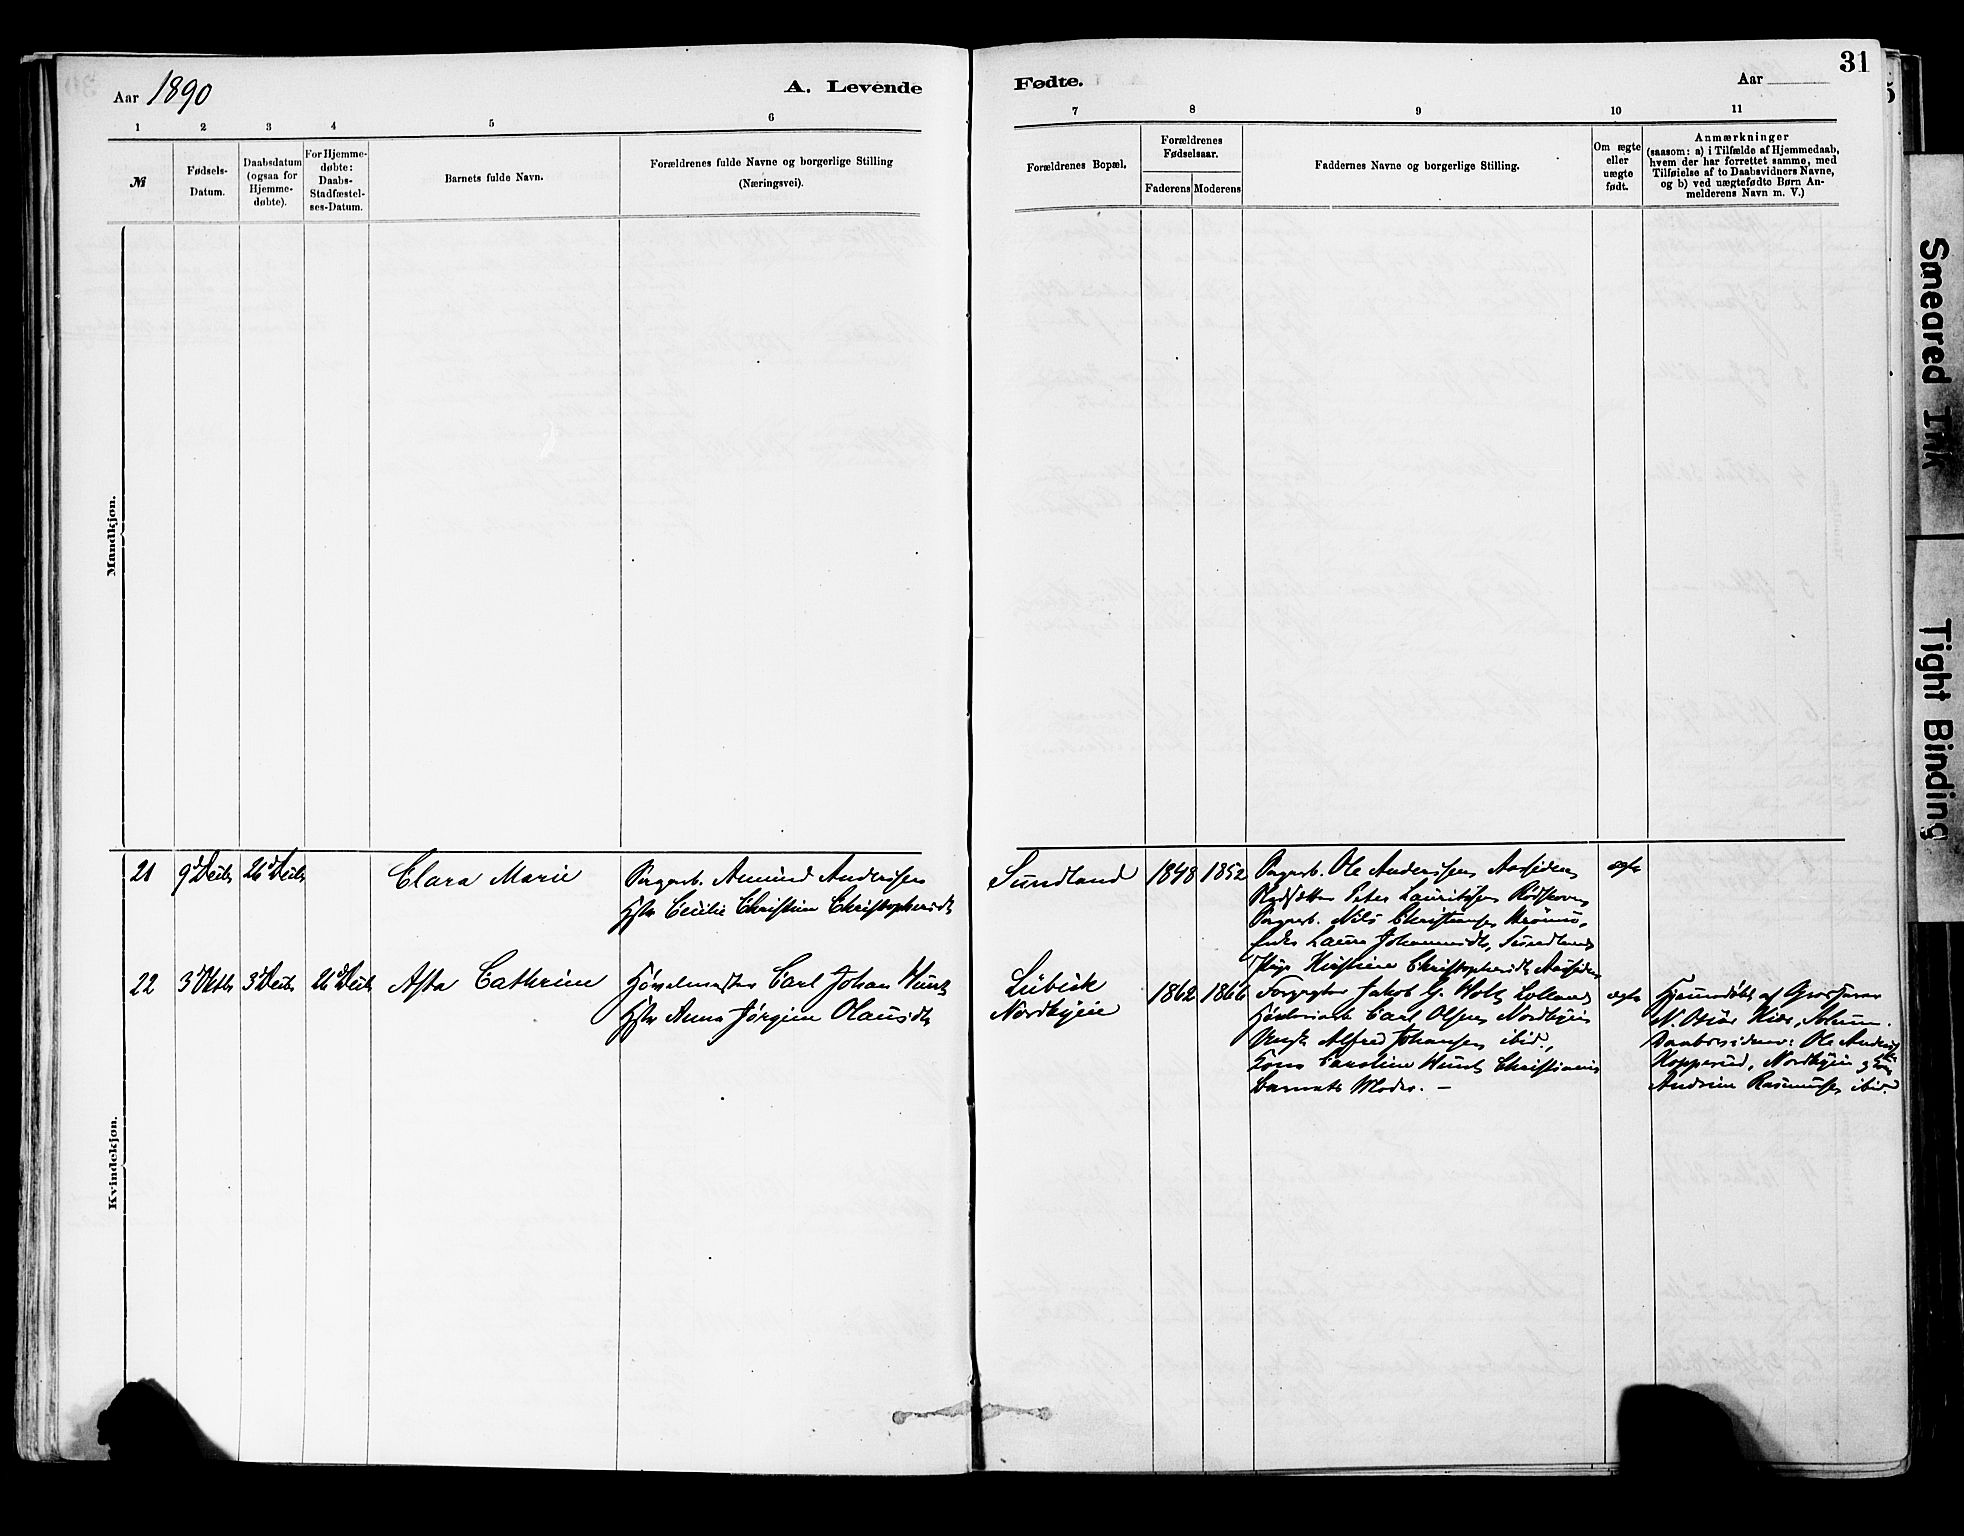 31
Aar 1890
A. Levende
Fødte.
Aar
1 2 3 4 5 6 7 8 9 10 11
№
Fødsels-
Datum.
Daabsdatum
(ogsaa for
Hjemme-
døbte).
For Hjemme-
døbte:
Daabs-
Stadfæstel-
ses-Datum.
Barnets fulde Navn.
Forældrenes fulde Navne og borgerlige Stilling
(Næringsvei).
Forældrenes Bopæl.
Forældrenes
Fødselsaar.
Faderens Moderens
Faddernes Navne og borgerlige Stilling.
Om ægte
eller
uægte
født.
Anmærkninger
(saasom: a) i Tilfælde af Hjemmedaab,
hvem der har forrettet samme, med
Tilføielse af to Daabsvidners Navne,
og b) ved uægtefødte Børn An-
melderens Navn m. V.)
Mandkjøn.
Kvindekjøn.
21
9d Decbr
26d Decbr
Clara Marie
Amund Anderssen
Hstr Cecilie Christine Christophersdt
Sundland
1848
1852
Ole Anderssen
Peter Lauritssen
Nils Christiansen
Enke Laura Johannesdt, Sundland
Pige Kirstine Christophersdt
ægte
22
3d Oktbr
3d Decbr
26d Decbr
Asta Cathrine
Høvelmester Carl Johan
Hstr Anna Jørgine Olausdt
Lübeck
Nordbyeie
1862
1866
Jakob G. Holt
Carl Olsen Nordbyeie
Ungk. Alfred Johansen ibid.,
Kone Caroline Christiania
Barnets Moder. –
ægte
Hjemmedøbt af Grosserer
N. Kiær, Solum.
Daabsvidner: Ole Anders.
Kopperud, Nordbyeie og
Andrine Rasmussen ibid.
Smeared Ink
Tight Binding